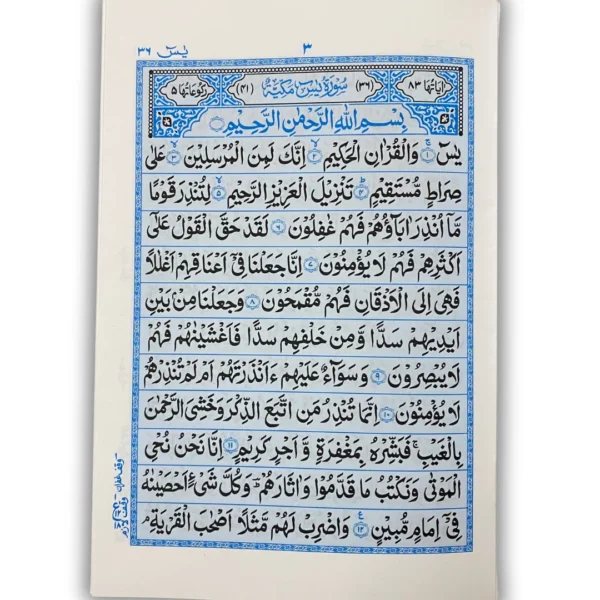 یٰسٓ ٣٦
٣
اٰیَاتُهَا ٨٣ (٣٦) سُوْرَةُ یٰسٓ مَكِّیَّةٌ (٤١) رُكُوْعَاتُهَا ٥
بِسْمِ اللّٰهِ الرَّحْمٰنِ الرَّحِیْمِ
یٰسٓ ۚ ١ وَالْقُرْاٰنِ الْحَكِیْمِ ۙ ٢ اِنَّكَ لَمِنَ الْمُرْسَلِیْنَ ۙ ٣ عَلٰی
صِرَاطٍ مُّسْتَقِیْمٍ ؕ ٤ تَنْزِیْلَ الْعَزِیْزِ الرَّحِیْمِ ۙ ٥ لِتُنْذِرَ قَوْمًا
مَّاۤ اُنْذِرَ اٰبَآؤُهُمْ فَهُمْ غٰفِلُوْنَ ٦ لَقَدْ حَقَّ الْقَوْلُ عَلٰۤی
اَكْثَرِهِمْ فَهُمْ لَا یُؤْمِنُوْنَ ٧ اِنَّا جَعَلْنَا فِیْۤ اَعْنَاقِهِمْ اَغْلٰلًا
فَهِیَ اِلَی الْاَذْقَانِ فَهُمْ مُّقْمَحُوْنَ ٨ وَجَعَلْنَا مِنْۢ بَیْنِ
اَیْدِیْهِمْ سَدًّا وَّمِنْ خَلْفِهِمْ سَدًّا فَاَغْشَیْنٰهُمْ فَهُمْ
لَا یُبْصِرُوْنَ ٩ وَسَوَآءٌ عَلَیْهِمْ ءَاَنْذَرْتَهُمْ اَمْ لَمْ تُنْذِرْهُمْ
لَا یُؤْمِنُوْنَ ١٠ اِنَّمَا تُنْذِرُ مَنِ اتَّبَعَ الذِّكْرَ وَخَشِیَ الرَّحْمٰنَ
بِالْغَیْبِ ۚ فَبَشِّرْهُ بِمَغْفِرَةٍ وَّاَجْرٍ كَرِیْمٍ ١١ اِنَّا نَحْنُ نُحْیِ
الْمَوْتٰی وَنَكْتُبُ مَا قَدَّمُوْا وَاٰثَارَهُمْ ؔؕ وَكُلَّ شَیْءٍ اَحْصَیْنٰهُ
فِیْۤ اِمَامٍ مُّبِیْنٍ ١٢ وَاضْرِبْ لَهُمْ مَّثَلًا اَصْحٰبَ الْقَرْیَةِ ۘ
وقف غفران